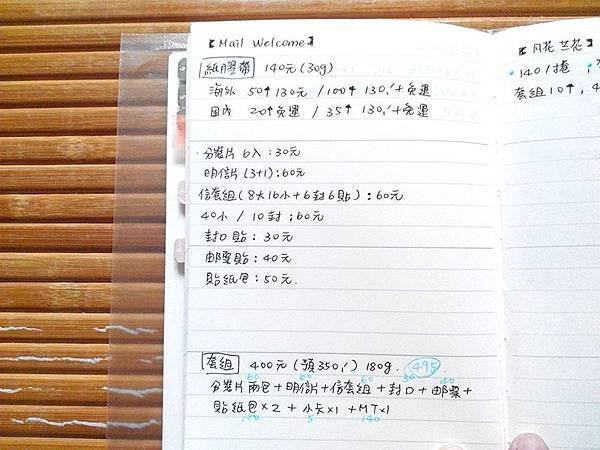 【Mail Welcome】
紙膠帶 140元 (30g)
海外 50↑ 130元 / 100↑ 130.- + 免運
国內 20↑免運 / 35↑ 130.- + 免運
·分裝片 6入:30元
明信片 (3+1):60元
信套組 (8大16小+6封6貼):60元
40小 / 10封:60元
封口貼:30元
郵票貼:40元
貼紙包:50元.
套組 400元 (預350.-) 180g. 495
60 60 60 30 40
分裝片兩包+明信片+信套組+封口+郵票+
貼紙包×2 + 小卡×1 +MT×1
100 5 140
【月花 芒花
·140/捲
套組10↑, 4